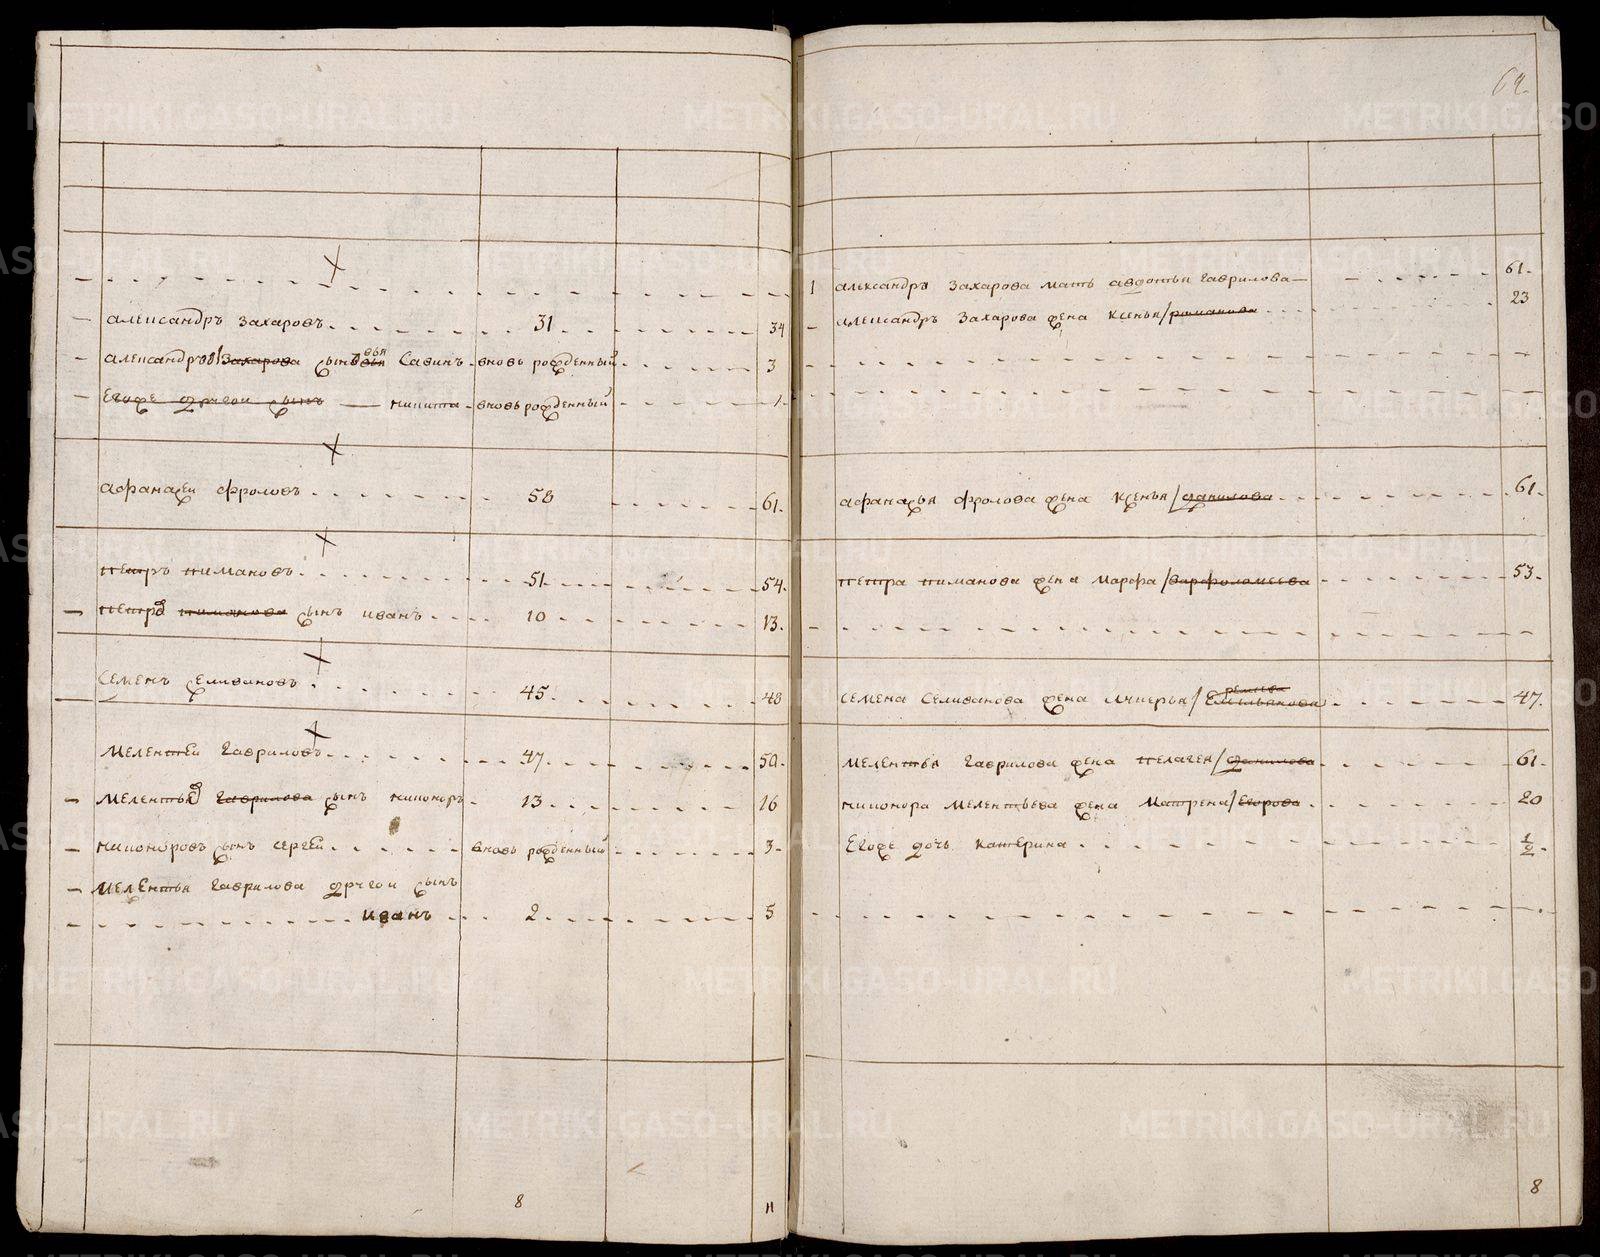 62.
александръ Захаровъ 31 34
александровъ Захарова сынъ Савинъ вновь рожденный 3
Егоже другои сынъ никита вновь рожденный 1
афанасеи фроловъ 58 61.
петръ пимановъ 51 54.
петра пиманова сынъ иванъ 10 13.
Семенъ Селивановъ 45 48
мелентеи Гавриловъ 47 50.
мелентья Гаврилова сынъ никоноръ 13 16
никоноровъ сынъ сергеи вновь рожденный 3.
мелентья Гаврилова другои сынъ
иванъ 2 5
8 11
1 александра Захарова мать авдотья Гаврилова 61.
александръ Захарова жена ксенья/романова 23
афанасья фролова жена ксенья/данилова 61.
петра пиманова жена марфа/варфоломеева 53.
семена Селиванова жена 47.
мелентья Гаврилова жена пелагея/данилова 61.
никонора мелентьева жена матрена/Егорова 20
Егоже дочь катерина 1/2.
8
METRIKI.GASO-URAL.RU